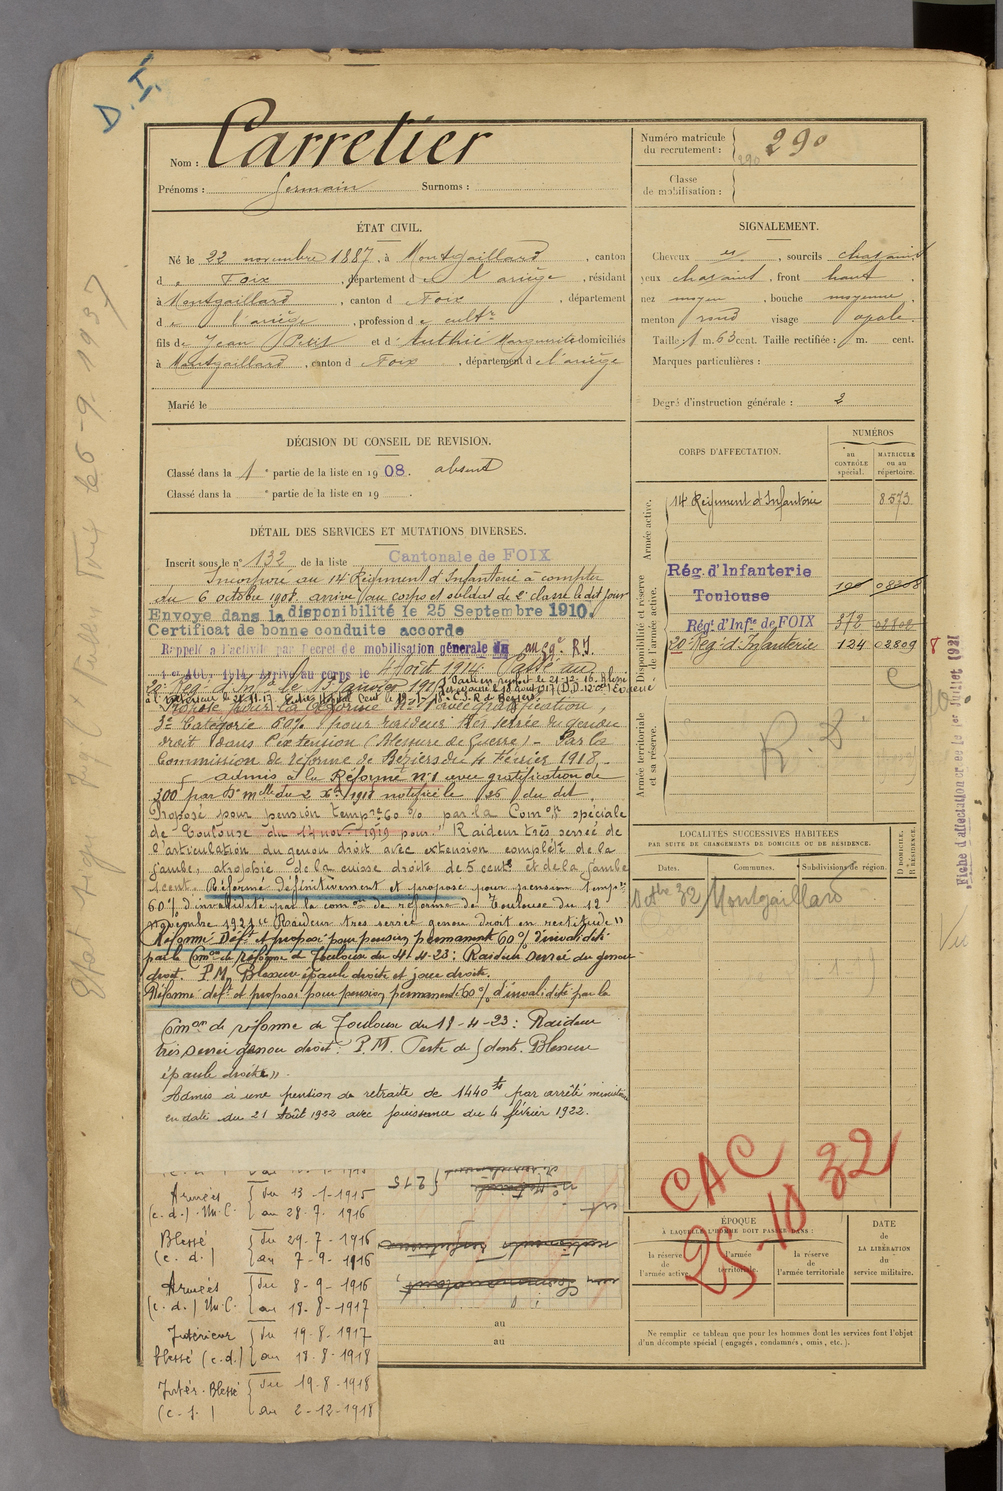 D. I.
Nom : Carretier
Prénoms : Germain Surnoms :
Numéro matricule du recrutement : 290
290
Classe de mobilisation :
ÉTAT CIVIL.
Né le 22 novembre 1887, à Montgaillard, canton
d e Foix, département d e l'ariège, résidant
à Montgaillard, canton d Foix, département
d e l'ariège, profession d e cultr
fils de Jean Petit et d' Authié Marguerite domiciliés
à Montgaillard, canton d Foix, département d e l'ariège
Marié le
SIGNALEMENT.
Cheveux et, sourcils chatains
yeux chatains, front haut
nez moyen, bouche moyenne
menton rond visage ovale
Taille : 1 m. 63 cent. Taille rectifiée : m. cent.
Marques particulières :
Degré d'instruction générale : 2
DÉCISION DU CONSEIL DE REVISION.
Classé dans la 1e partie de la liste en 1908. absent
Classé dans la e partie de la liste en 19 .
DÉTAIL DES SERVICES ET MUTATIONS DIVERSES.
Inscrit sous le n° 132 de la liste Cantonale de FOIX
Incorporé au 14 Régiment d'Infanterie à compter
du 6 octobre 1908. arrivé au corps et soldat de 2e classe le dit jour
Envoyé dans la disponibilité le 25 Septembre 1910.
Certificat de bonne conduite accordé
Rappelé à l'activité par Décret de mobilisation générale du au 59e R.I.
1er Aout 1914. Arrivé au corps le 4 Août 1914. Passé au
20e Reg. d'Inf. le 13 Janvier 1915
Proposé pour la Réforme N° 1 avec gratification,
3e Catégorie 60% pour raideur très serrée du genou
droit dans l'extension (Blessure de Guerre) - Par la
Commission de réforme de Béziers du 4 Février 1918.
admis à la Réforme n° 1 avec gratification de
300f par Dn mlle du 2 Xbre 1918 notifiée le 26 du dit.
Proposé pour pension tempre 60% par la Comon spéciale
de Toulouse du 14 nov. 1919 pour : "Raideur très serrée de
l'articulation du genou droit avec extension complète de la
jambe, atrophie de la cuisse droite de 5 cents et de la jambe
1 cent. Réformé définitivement et proposé pour pension tempre
60% d'invalidité par la comon de réforme de Toulouse du 12
novembre 1921 "Raideur très serrée genou droit en rectitude"
Réformé Deft et proposé pour pension permanente 60% d'invalidité
par la Comon de réforme de Toulouse du 11-4-23 : Raideur serrée du genou
droit. P.M. Blessure épaule droite et joue droite.
Réformé deft et proposé pour pension permanente 60% d'invalidité par la
Comon de réforme de Toulouse du 18-4-23 : Raideur
très serrée genou droit. P.M. Perte de 5 dents. Blessure
épaule droite".
Admis à une pension de retraite de 1440 fs par arrêté ministériel
en date du 21 Août 1922 avec jouissance du 4 février 1922.
Armées (c.d.) Un.C. du 13-1-1915 au 28-7-1916
Blessé (c.d.) du 29-7-1916 au 7-9-1916
Armées (c.d.) Un.C. du 8-9-1916 au 18-8-1917
Intérieur blessé (c.d.) du 19-8-1917 au 18-8-1918
Intér. Blessé (c.s.) du 19-8-1918 au 2-12-1918
215
au
au
CORPS D'AFFECTATION.
NUMÉROS
au CONTRÔLE spécial.
MATRICULE ou au répertoire.
Armée active.
14 Régiment d'Infanterie 8573
Disponibilité et réserve de l'armée active.
Rég. d'Infanterie
Toulouse 100 08208
Régt d'Infie de FOIX 372 02802
20 Reg. d'Infanterie 124 02809 8
C
Armée territoriale et sa réserve.
R. D
LOCALITÉS SUCCESSIVES HABITÉES
PAR SUITE DE CHANGEMENTS DE DOMICILE OU DE RÉSIDENCE.
Dates. Communes. Subdivision de région.
D DOMICILE. R RÉSIDENCE.
Octbre 32 Montgaillard
CAC
25-10 32
ÉPOQUE
À LAQUELLE L'HOMME DOIT PASSER DANS :
la réserve de l'armée active
l'armée territoriale
la réserve de l'armée territoriale
DATE de LA LIBÉRATION du service militaire.
Ne remplir ce tableau que pour les hommes dont les services font l'objet
d'un décompte spécial (engagés, condamnés, omis, etc.).
Fiche d'affectation créée le 1er Juillet 1921
Vu